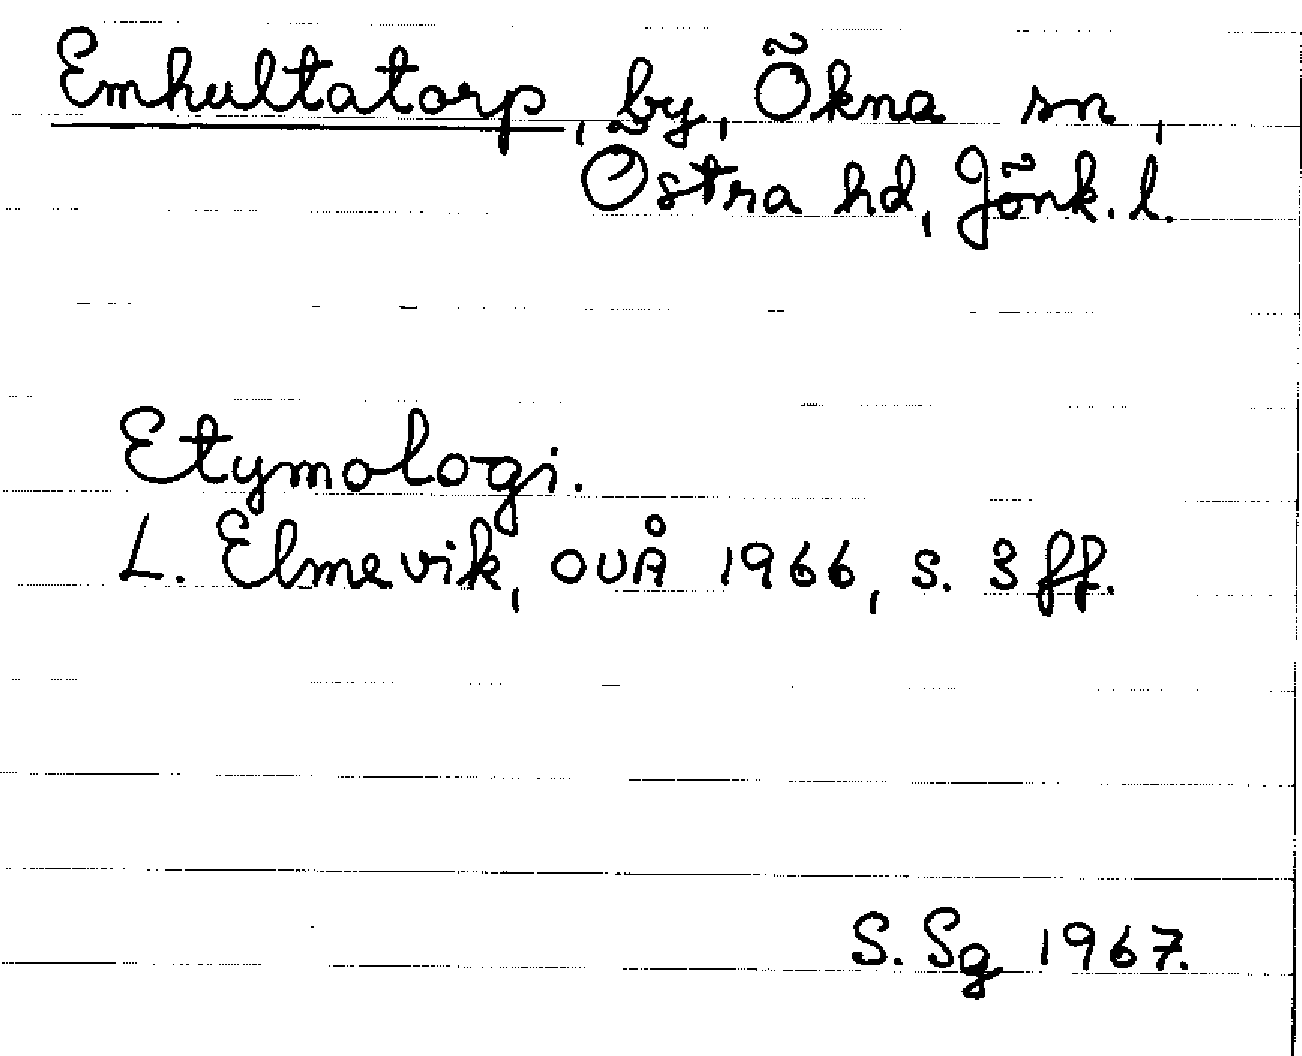 Emhultatorp, by, Ökna sn,
Östra hd, Jönk. l.
Etymologi.
L. Elmevik, OUÅ 1966, s. 3 ff.
S. Sg 1967.